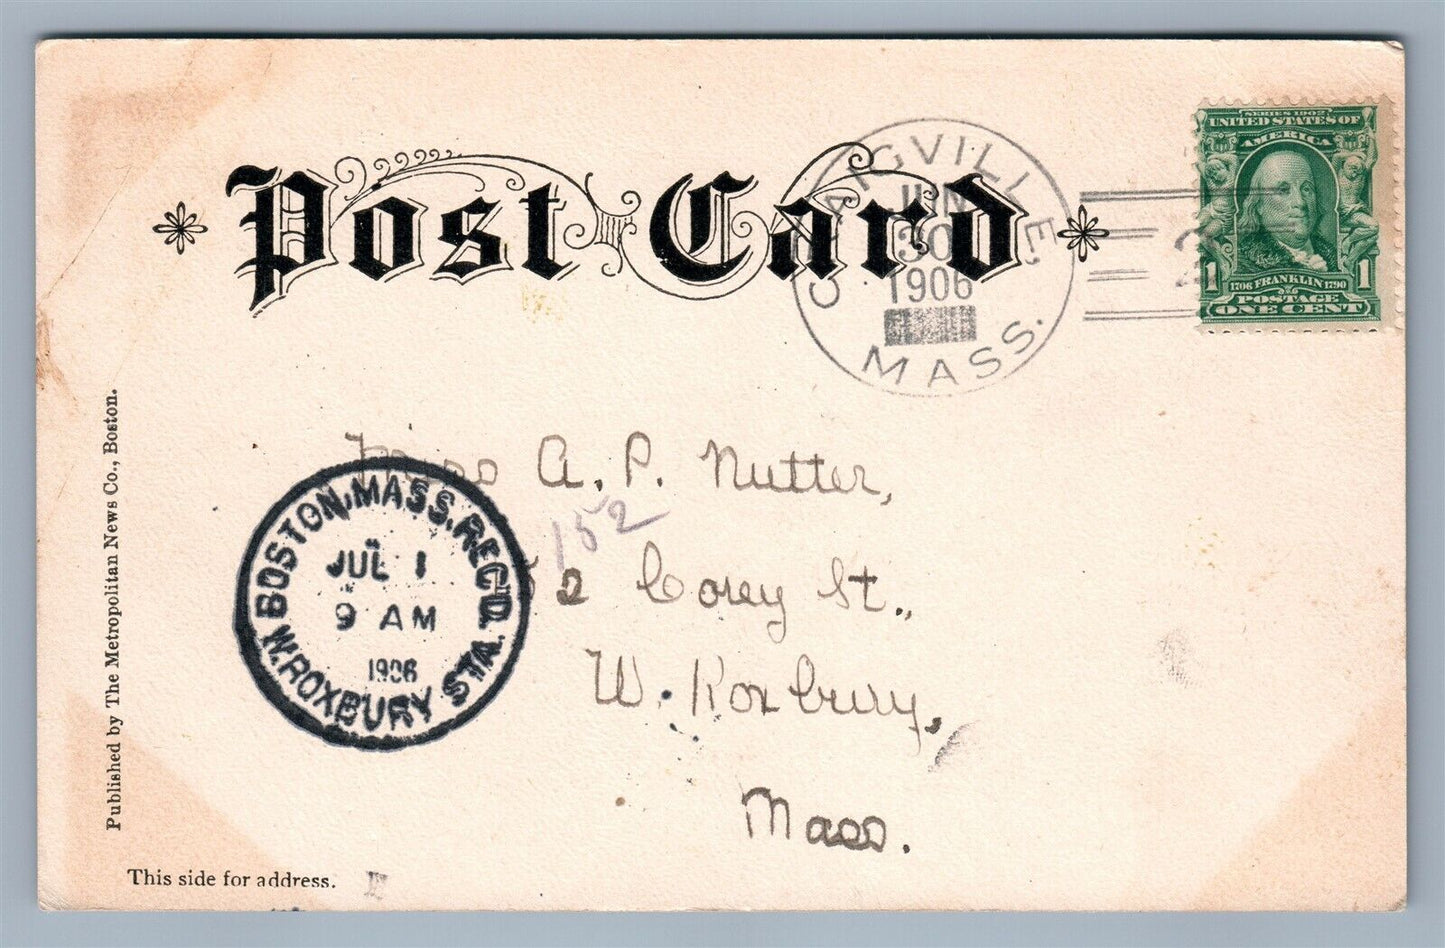 Post Card
CRAIGVILLE,
JUN
30
1906
MASS.
2
SERIES 1902
UNITED STATES OF
AMERICA
1706 FRANKLIN 1790
1 POSTAGE 1
ONE CENT
Miss A. P. Nutter,
152
52 Corey St.,
W. Roxbury,
Mass.
BOSTON, MASS. REC'D.
JUL 1
9 AM
1906
W. ROXBURY STA.
Published by The Metropolitan News Co., Boston.
This side for address.